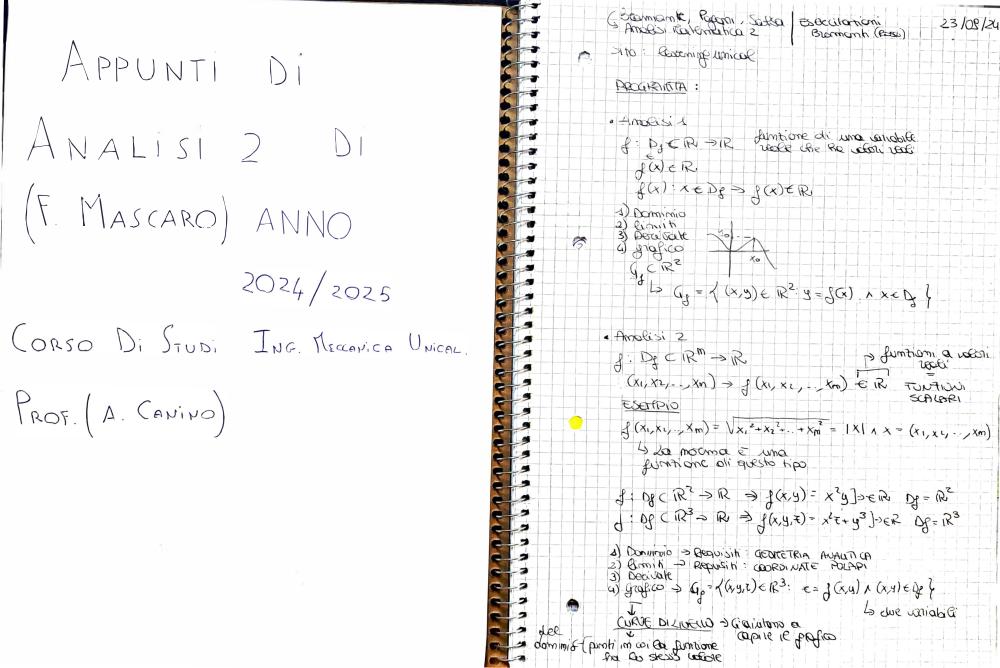 APPUNTI DI
ANALISI 2 DI
(F. MASCARO) ANNO
2024/2025
CORSO DI STUDI ING. MECCANICA UNICAL.
PROF. (A. CANINO)
Pagani, | Esercitazioni 23/09/24
Analisi Matematica 2 | Bramanti
PROGRAMMA :
• Analisi 1
f : Df ⊂ ℝ → ℝ funzione di una variabile
reale che ha valori reali
f(x) ∈ ℝ
f(x) : x ∈ Df → f(x) ∈ ℝ
1) Dominio
2) Limiti
3) Derivate
4) grafico
x₀
Gf ⊂ ℝ²
↳ Gf = { (x,y) ∈ ℝ² : y = f(x) ∧ x ∈ Df }
• Analisi 2
f : Df ⊂ ℝᵐ → ℝ → funzioni a valori
reali
(x₁, x₂, .., xₘ) → f (x₁, x₂, .., xₘ) ∈ ℝ = FUNZIONI
SCALARI
ESEMPIO
f (x₁, x₂, .., xₘ) = √x₁² + x₂² + .. + xₘ² = |x| ∧ x = (x₁, x₂, .., xₘ)
↳ La norma è una
funzione di questo tipo
f : Df ⊂ ℝ² → ℝ ⇒ f(x,y) = x²y] → ∈ ℝ Df = ℝ²
f : Df ⊂ ℝ³ → ℝ ⇒ f(x,y,z) = x²z + y³] → ∈ ℝ Df = ℝ³
1) Dominio → Requisiti : GEOMETRIA ANALITICA
2) Limiti → Requisiti : COORDINATE POLARI
3) Derivate
4) grafico → Gf = { (x,y,z) ∈ ℝ³ : z = f(x,y) ∧ (x,y) ∈ Df }
↓ ↳ due variabili
CURVE DI LIVELLO → Ci aiutano a
capire il grafico
↓
del
dominio (punti in cui la funzione
ha lo stesso valore